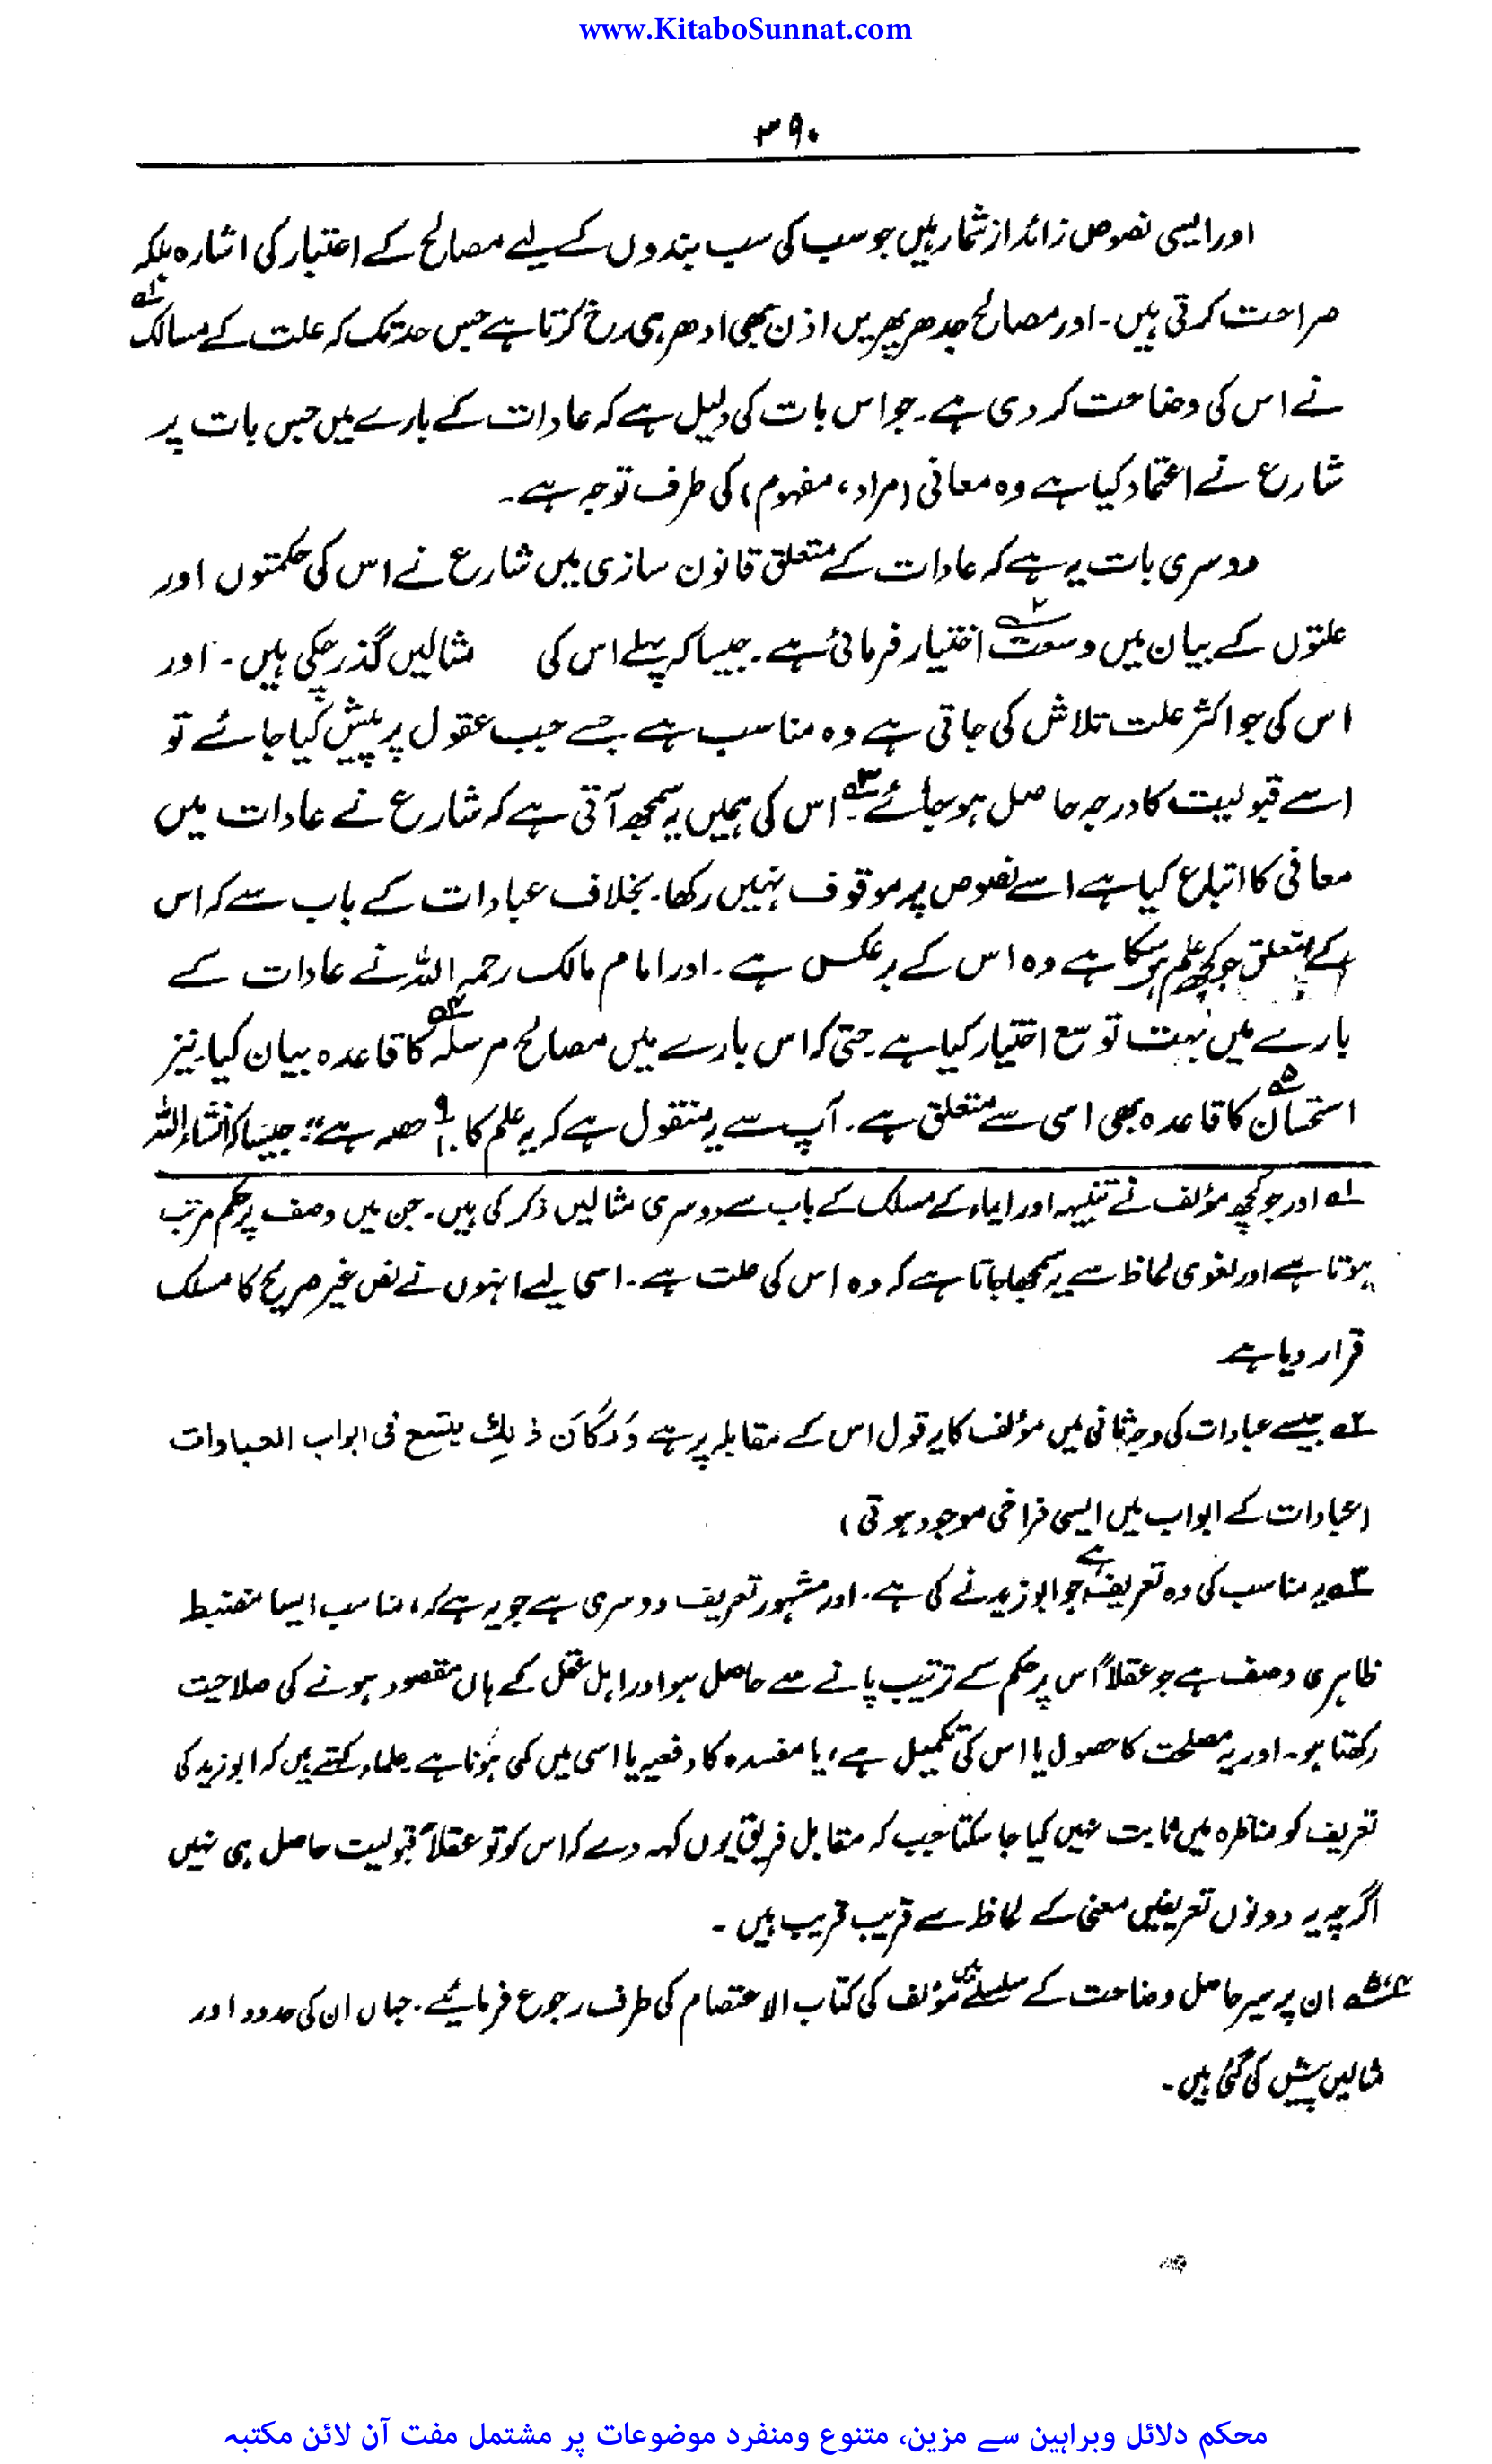 www.KitaboSunnat.com
۳۹۰
اور ایسی نصوص زائد از شمار ہیں جو سب کی سب بندوں کے لیے مصالح کے اعتبار کی اشارہ بلکہ
صراحت کرتی ہیں۔ اور مصالح جدھر پھریں اذن بھی ادھر ہی رخ کرتا ہے جس حد تک کہ علت کے مسالک ۱ھ
نے اس کی وضاحت کر دی ہے۔ جو اس بات کی دلیل ہے کہ عادات کے بارے میں جس بات پر
شارع نے اعتماد کیا ہے وہ معانی (مراد، مفہوم) کی طرف توجہ ہے۔
دوسری بات یہ ہے کہ عادات کے متعلق قانون سازی میں شارع نے اس کی حکمتوں اور
علتوں کے بیان میں وسعت ۲ اختیار فرمائی ہے۔ جیسا کہ پہلے اس کی مثالیں گذر چکی ہیں۔ اور
اس کی جو اکثر علت تلاش کی جاتی ہے وہ مناسب ہے جسے جب عقول پر پیش کیا جائے تو
اسے قبولیت کا درجہ حاصل ہو جائے ۳ھ۔ اس کی ہمیں یہ سمجھ آتی ہے کہ شارع نے عادات میں
معانی کا اتباع کیا ہے اسے نصوص پر موقوف نہیں رکھا۔ بخلاف عبادات کے باب سے کہ اس
کے متعلق جو کچھ علم ہو سکا ہے وہ اس کے برعکس ہے۔ اور امام مالک رحمہ اللہ نے عادات کے
بارے میں بہت توسع اختیار کیا ہے۔ حتیٰ کہ اس بارے میں مصالح مرسلہ ۴ھ کا قاعدہ بیان کیا۔ نیز
استحسان ۵ھ کا قاعدہ بھی اسی سے متعلق ہے۔ آپ سے یہ منقول ہے کہ یہ علم کا ۹/۱۰ حصہ ہے"۔ جیسا کہ انشاء اللہ
۱ھ اور جو کچھ مؤلف نے تنبیہہ اور ایماء کے مسلک کے باب سے دوسری مثالیں ذکر کی ہیں۔ جن میں وصف پر حکم مرتب
ہوتا ہے اور لغوی لحاظ سے یہ سمجھا جاتا ہے کہ وہ اس کی علت ہے۔ اسی لیے انہوں نے نص غیر صریح کا مسلک
قرار دیا ہے
۲ھ جیسے عبادات کی وجہ ثانی میں مؤلف کا یہ قول اس کے مقابلہ پر ہے وَرَكَانَ ذٰلِك يتسع فى ابواب العبادات
(عبادات کے ابواب میں ایسی فراخی موجود ہوتی)
۳ھ یہ مناسب کی وہ تعریف ہے جو ابو زید نے کی ہے۔ اور مشہور تعریف دوسری ہے جو یہ ہے کہ، مناسب ایسا منضبط
ظاہری وصف ہے جو عقلاً اس پر حکم کے ترتیب پانے سے حاصل ہو اور اہل عقل کے ہاں مقصود ہونے کی صلاحیت
رکھتا ہو۔ اور یہ مصلحت کا حصول یا اس کی تکمیل ہے، یا مفسدہ کا دفعیہ یا اسی میں کمی ہونا ہے۔ علماء کہتے ہیں کہ ابو زید کی
تعریف کو مناظرہ میں ثابت نہیں کیا جا سکتا جب کہ مقابل فریق یوں کہہ دے کہ اس کو تو عقلاً قبولیت حاصل ہی نہیں
اگرچہ یہ دونوں تعریفیں معنیٰ کے لحاظ سے قریب قریب ہیں۔
۴، ۵ھ ان پر سیر حاصل وضاحت کے سلسلے میں مؤلف کی کتاب الاعتصام کی طرف رجوع فرمائیے۔ جہاں ان کی حدود اور
مثالیں پیش کی گئی ہیں۔
محکم دلائل وبراہین سے مزین، متنوع ومنفرد موضوعات پر مشتمل مفت آن لائن مکتبہ